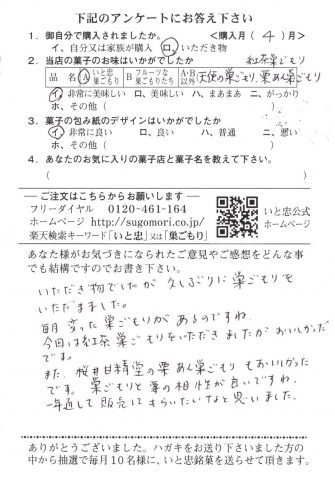 下記のアンケートにお答え下さい
1．御自分で購入されましたか。 ＜購入月（ 4 ）月＞
イ、自分又は家族が購入 ロ、いただき物
2．当店の菓子のお味はいかがでしたか 紅茶巣ごもり
品名 A いと忠巣ごもり B フルーツな巣ごもりたち A・B以外 天使の巣ごもり、栗あん巣ごもり
イ、非常に美味しい ロ、美味しい ハ、まあまあ ニ、がっかり
ホ、その他（ ）
3．菓子の包み紙のデザインはいかがでしたか
イ、非常に良い ロ、良い ハ、普通 ニ、悪い
ホ、その他（ ）
4．あなたのお気に入りの菓子店と菓子名を教えて下さい。
（ ）
ご注文はこちらからお願いします
フリーダイヤル 0120-461-164
ホームページ http://sugomori.co.jp/
楽天検索キーワード「いと忠」又は「巣ごもり」
いと忠公式
ホームページ
あなた様がお気づきになられたご意見やご感想をどんな事
でも結構ですのでお書き下さい。
いただき物でしたが久しぶりに巣ごもりを
いただきました。
毎月変った巣ごもりがあるのですね。
今回は紅茶巣ごもりをいただきましたがおいしかった
です。
また、桜井甘精堂の栗あん巣ごもりもおいしかった
です。巣ごもりと栗の相性が良いですね。
一年通して販売してもらいたいなと思いました。
ありがとうございました。ハガキをお送り下さいました方の
中から抽選で毎月10名様に、いと忠銘菓を送らせて頂きます。